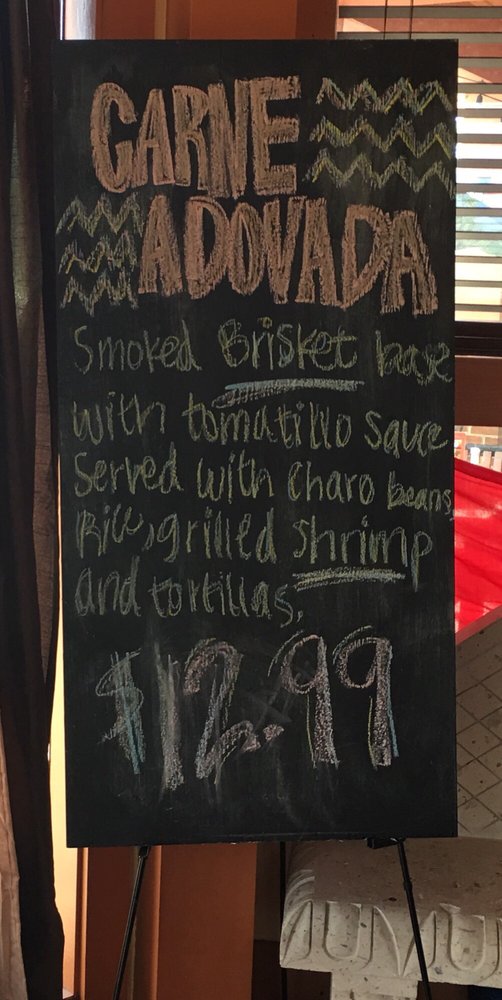 CARNE
ADOVADA
Smoked Brisket base
with tomatillo sauce
Served with Charo beans,
Rice, grilled shrimp
and tortillas.
$12.99